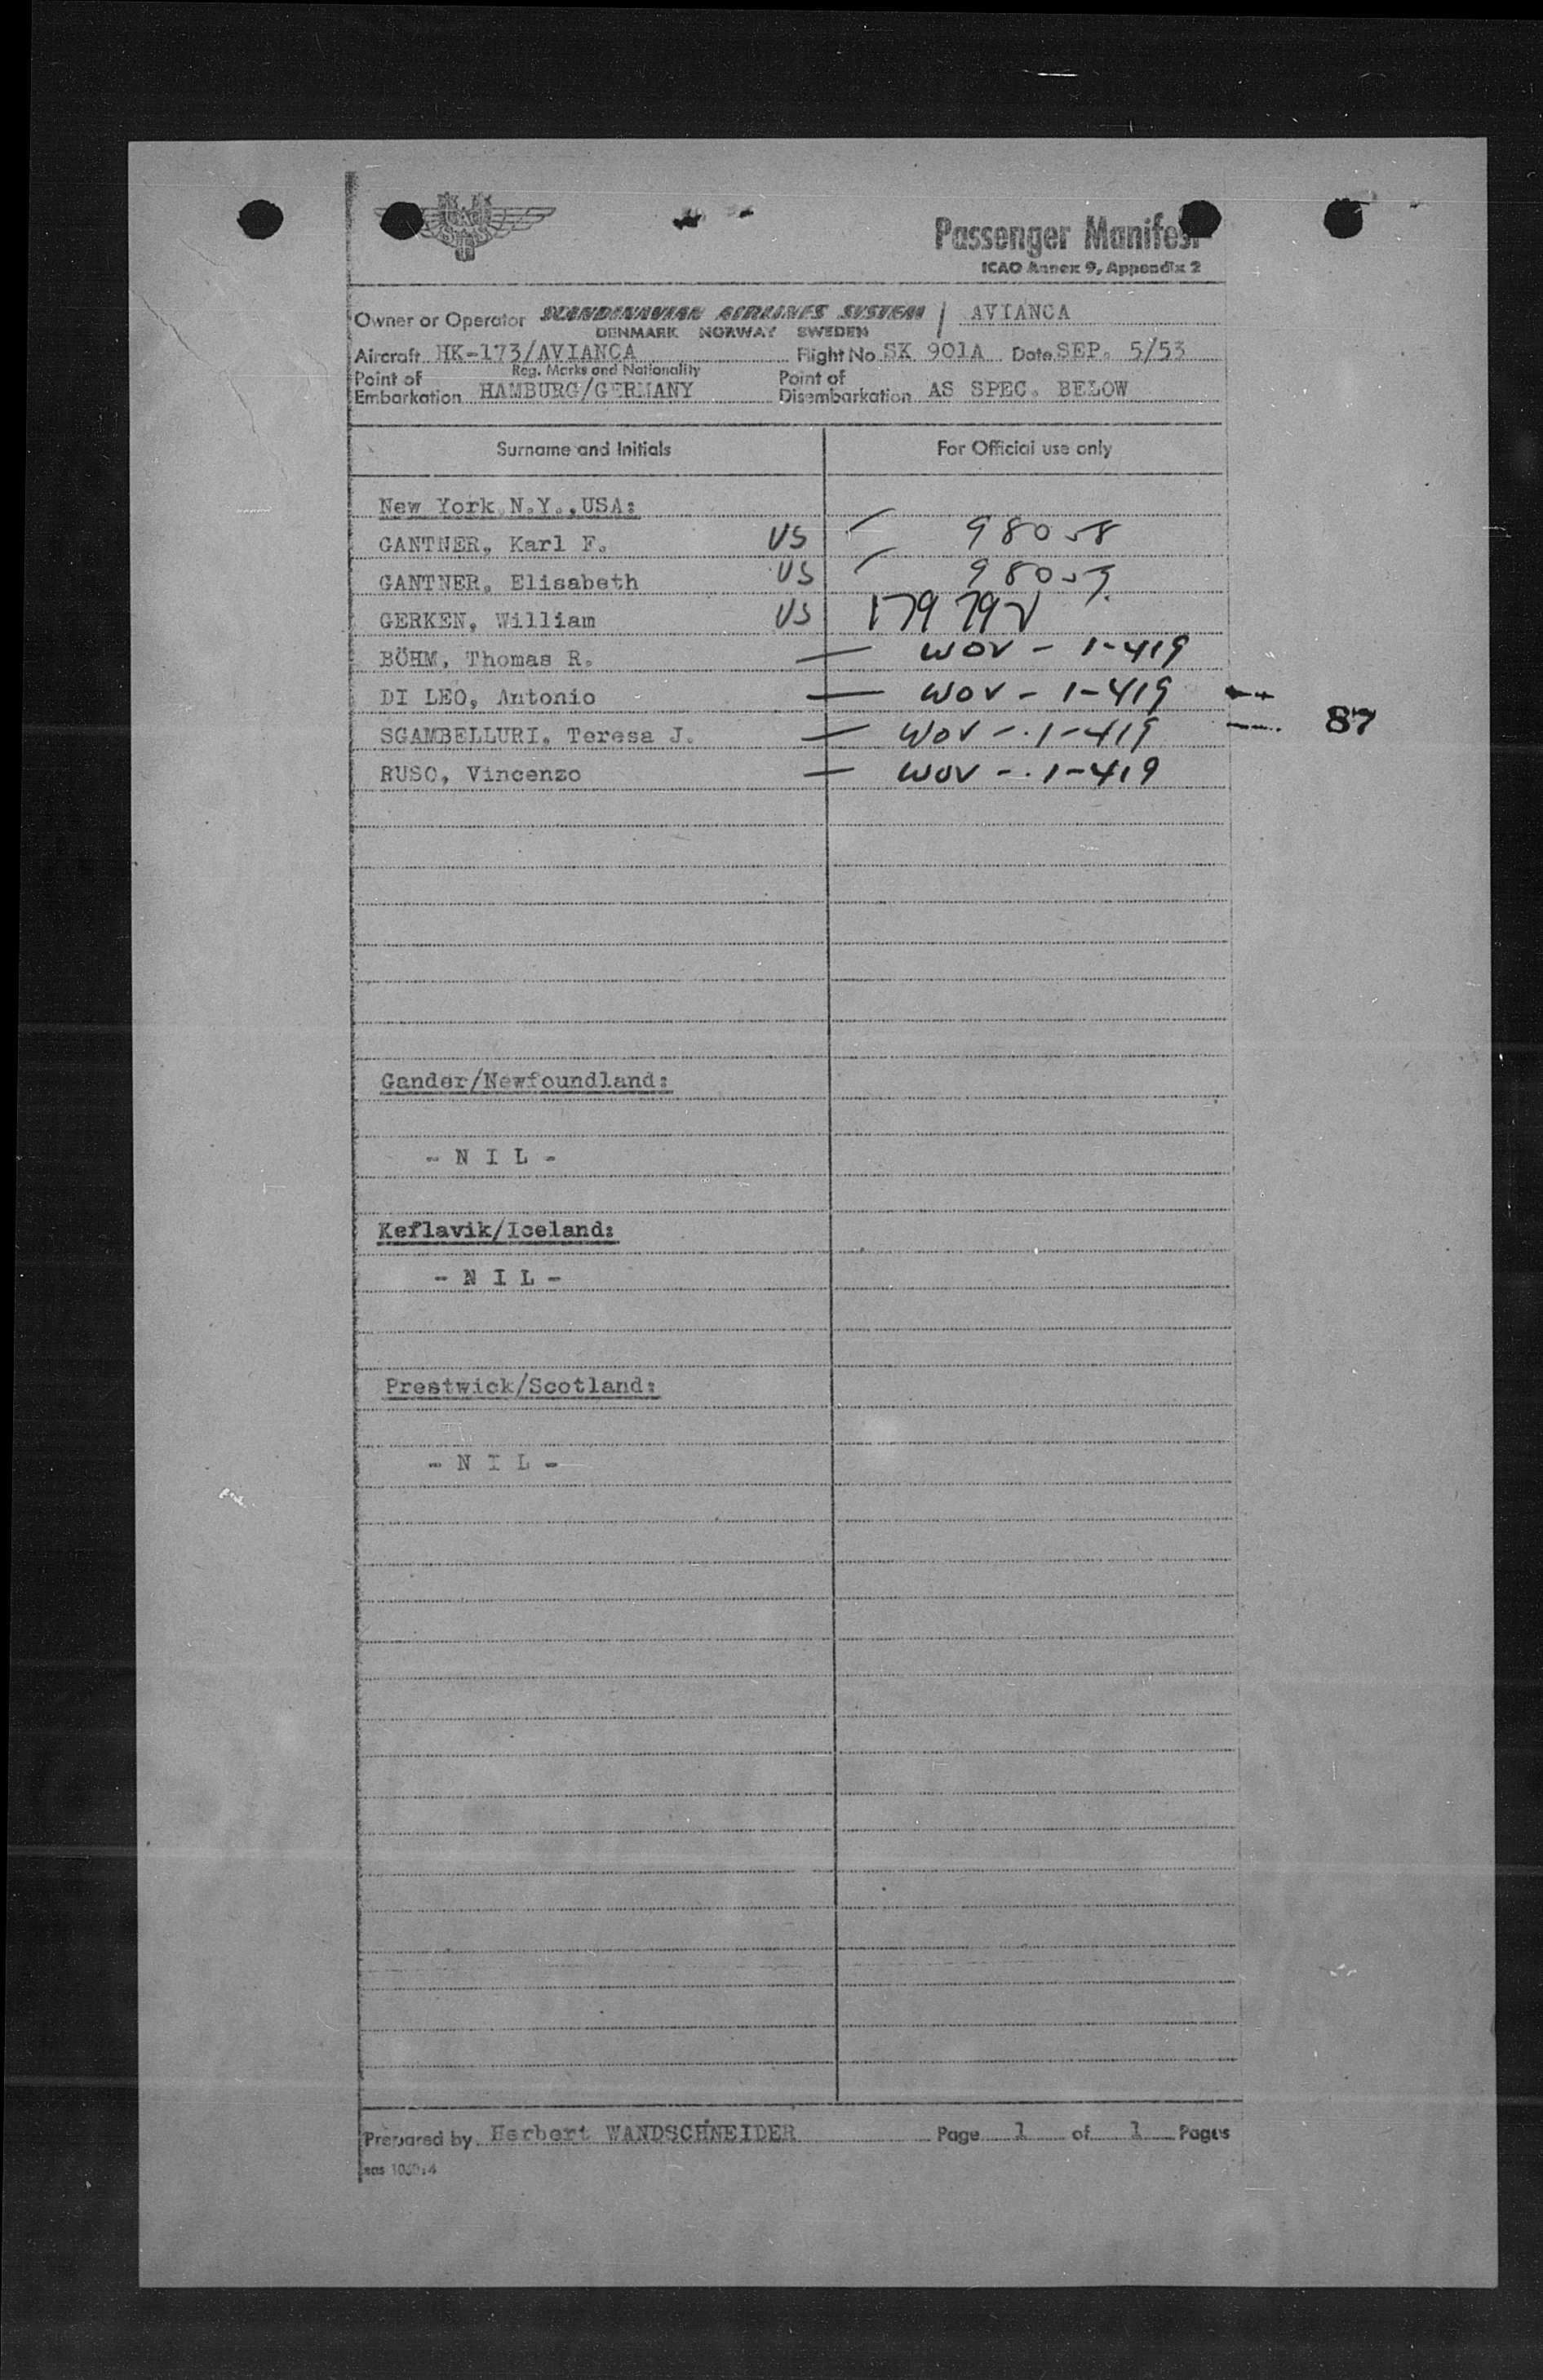 Passenger Manifest
ICAO Annex 9, Appendix 2
Owner or Operator SCANDINAVIAN AIRLINES SYSTEM / AVIANCA
DENMARK NORWAY SWEDEN
Aircraft HK-173/AVIANCA Flight No. SK 901A Date SEP. 5/53
Reg. Marks and Nationality
Point of Embarkation HAMBURG/GERMANY Point of Disembarkation AS SPEC. BELOW
Surname and Initials For Official use only
New York N.Y.,USA:
GANTNER, Karl F. US 98058
GANTNER, Elisabeth US 98059
GERKEN, William US
BÖHM, Thomas R. — WOV - 1-419
DI LEO, Antonio — WOV - 1-419
SGAMBELLURI, Teresa J. — WOV - 1-419 87
RUSO, Vincenzo — WOV - 1-419
Gander/Newfoundland:
- N I L -
Keflavik/Iceland:
- N I L -
Prestwick/Scotland:
- N I L -
Prepared by Herbert WANDSCHNEIDER Page 1 of 1 Pages
sas